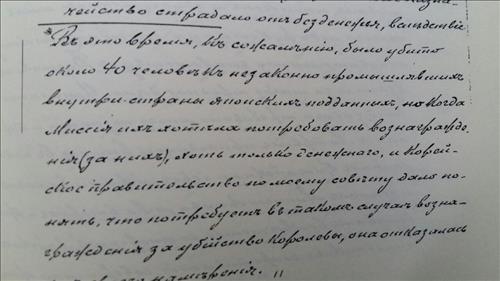 чейство страдало отъ безденежія, вслѣдствіе
Въ это время, къ сожалѣнію, было убито
около 40 человѣкъ незаконно промышлявшихъ
внутри страны японскихъ подданныхъ, но когда
Миссія ихъ хотѣла потребовать вознагражде-
нія (за нихъ), хоть только денежнаго, и Корей-
ское правительство по моему совѣту дало по-
нять, что потребуетъ въ такомъ случаѣ возна-
гражденія за убійство Королевы, она отказалась
намѣренія.